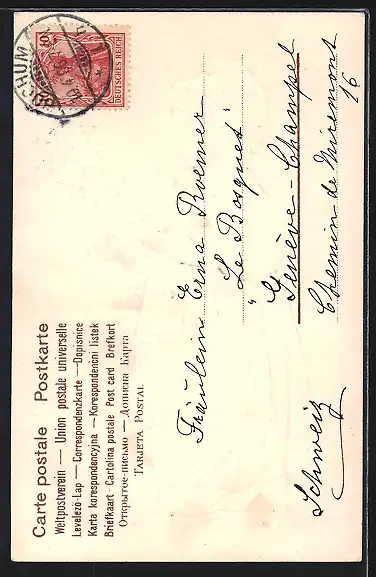 Carte postale Postkarte
Weltpostverein — Union postale universelle
Levelező-Lap — Correspondenzkarte — Dopisnice
Karta korespondencyjna — Korespondenční lístek
Briefkaart - Cartolina postale Post card Brefkort
Открытое-письмо — Дописна Карта
TARJETA POSTAL
10
DEUTSCHES REICH
Fräulein Erna Roemer
"Le Bosquet"
Genève-Champel
Chemin de Miremont
16
Schweiz